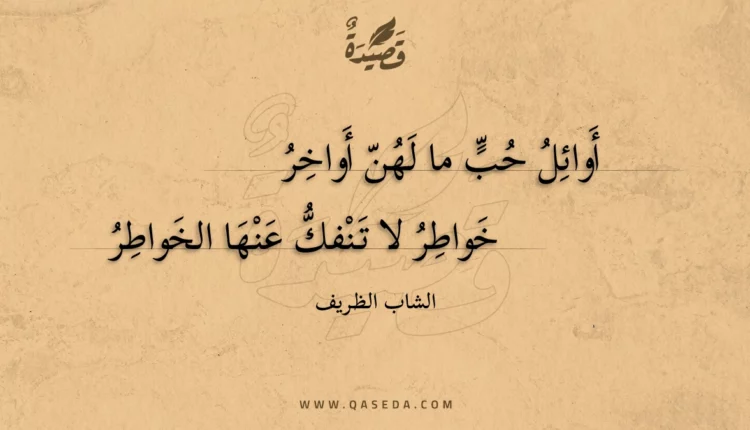 قَصِيدَةٌ
أَوائِلُ حُبٍّ ما لَهُنّ أَواخِرُ
خَواطِرُ لا تَنْفكُّ عَنْهَا الخَواطِرُ
الشاب الظريف
WWW.QASEDA.COM